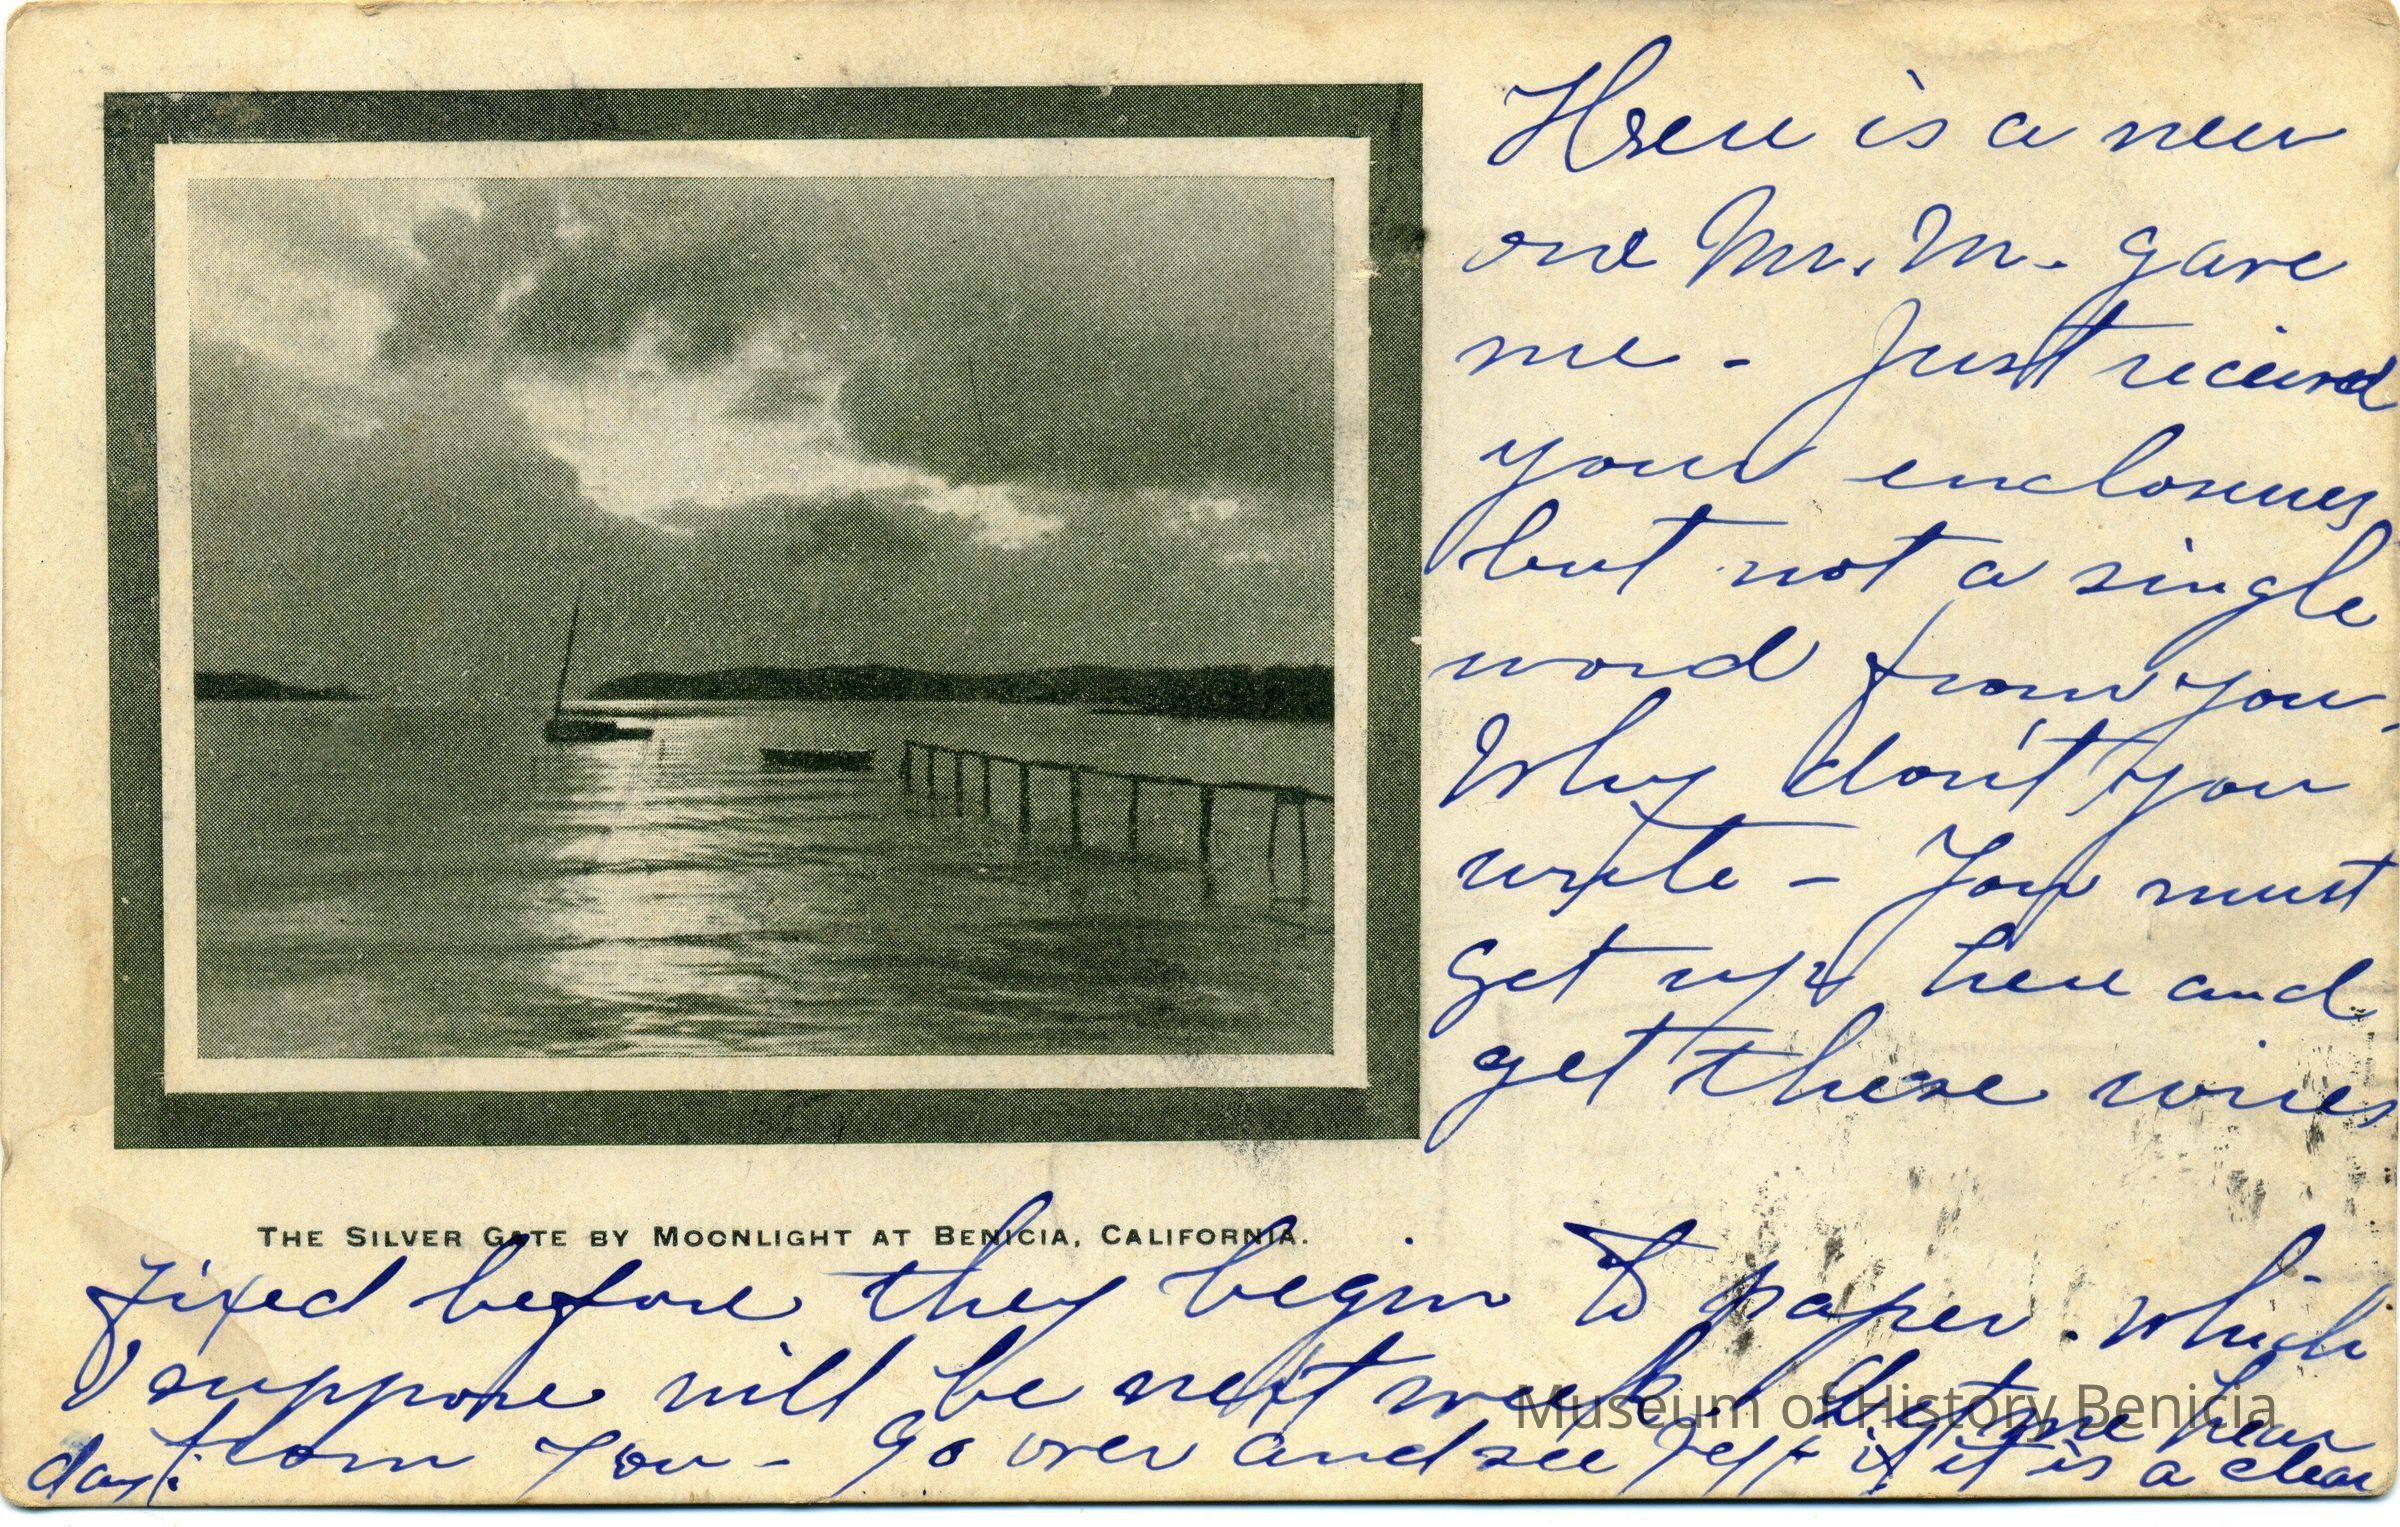 Here is a new
one Mr. M. gave
me - Just received
your enclosures
but not a single
word from you.
Why don't you
write - You must
get up here and
get these wires
THE SILVER GATE BY MOONLIGHT AT BENICIA, CALIFORNIA.
fixed before they begin to paper. which
I suppose will be next week. Let me hear
from you - Go over and see Jeff if it is a clear
day.
Museum of History Benicia